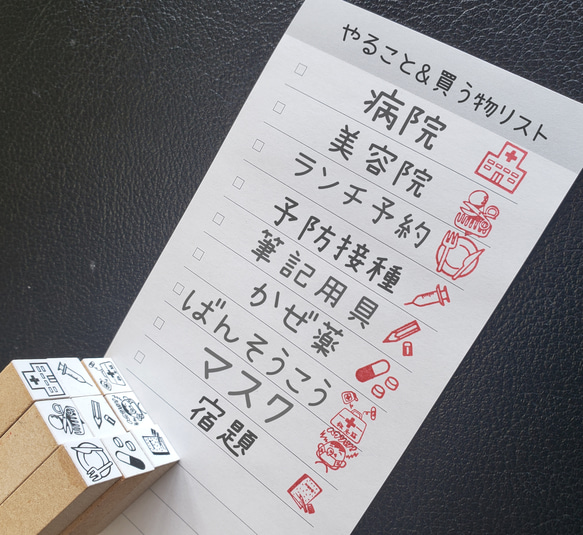 やること&買う物リスト
病院
美容院
ランチ予約
予防接種
筆記用具
かぜ薬
ばんそうこう
マスク
宿題